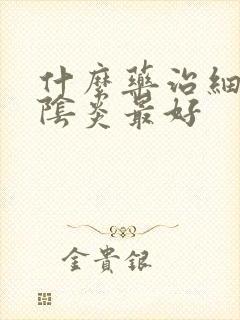 什麼藥治細
陰炎最好
金貴銀